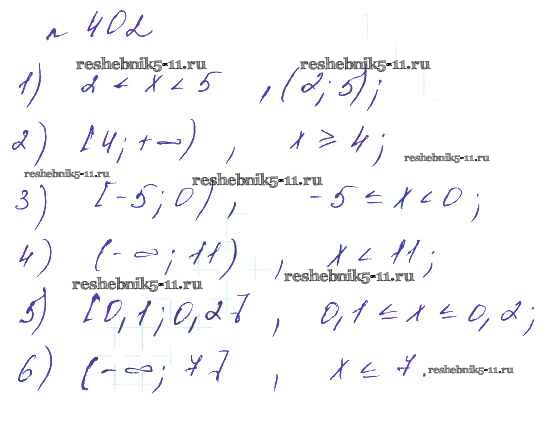 № 402
reshebnik5-11.ru reshebnik5-11.ru
1) 2 < x < 5 , (2; 5);
2) [4; +∞) , x ≥ 4;
reshebnik5-11.ru
reshebnik5-11.ru reshebnik5-11.ru
3) [-5; 0) , -5 ≤ x < 0;
4) (-∞; 11) , x < 11;
reshebnik5-11.ru reshebnik5-11.ru
5) [0,1; 0,2] , 0,1 ≤ x ≤ 0,2;
6) (-∞; 7] , x ≤ 7. reshebnik5-11.ru